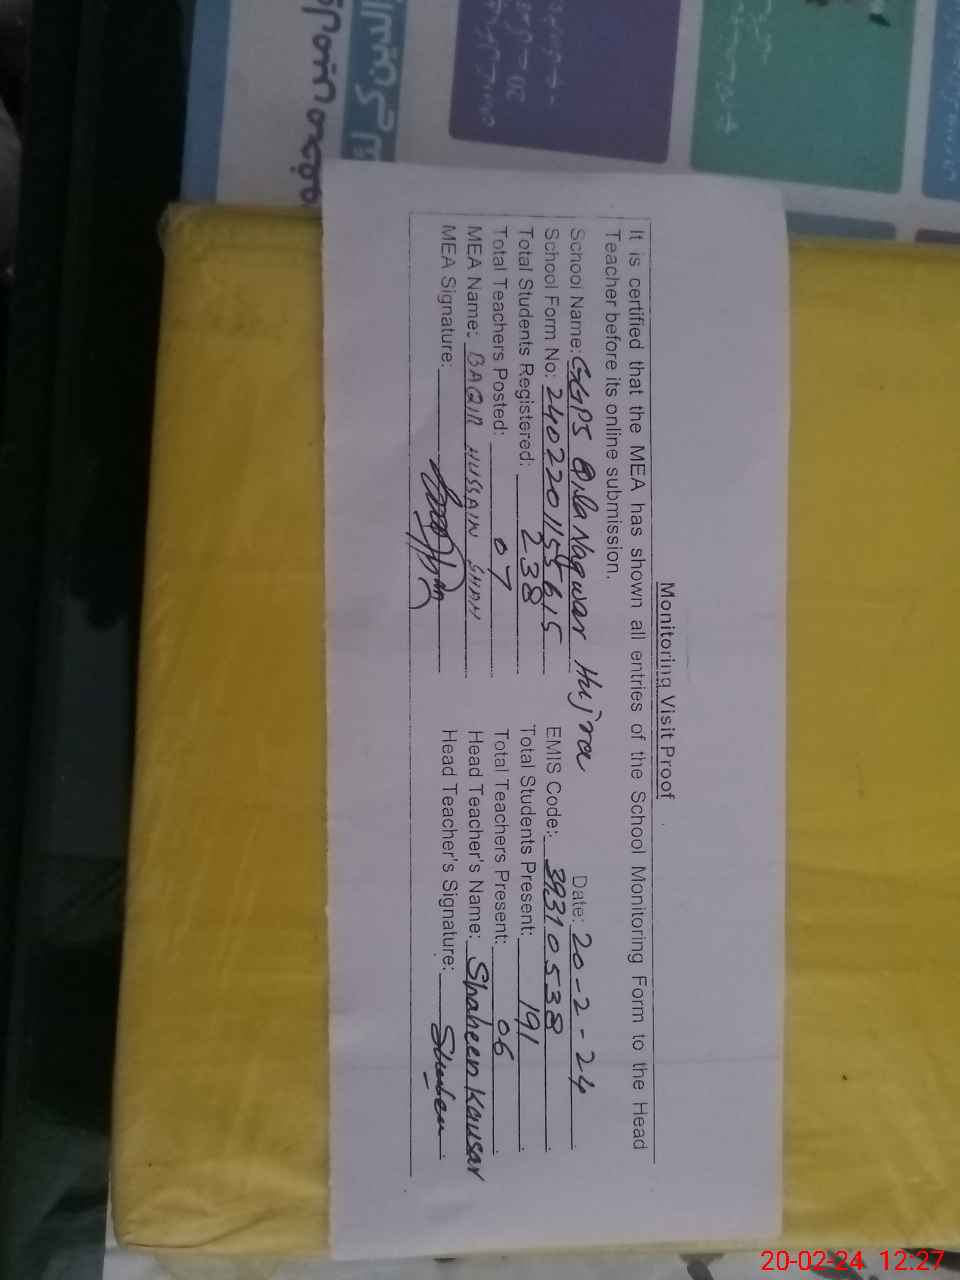 Monitoring Visit Proof
It is certified that the MEA has shown all entries of the School Monitoring Form to the Head
Teacher before its online submission.
School Name: GGPS Qila Nagwar Hujra Date: 20-2-24
School Form No: 2402201155615 EMIS Code: 39310538
Total Students Registered: 238 Total Students Present: 191
Total Teachers Posted: 07 Total Teachers Present: 06
MEA Name: BAQIR HUSSAIN SHAH Head Teacher's Name: Shaheen Kausar
MEA Signature: Head Teacher's Signature: Shaheen
20-02-24 12:27